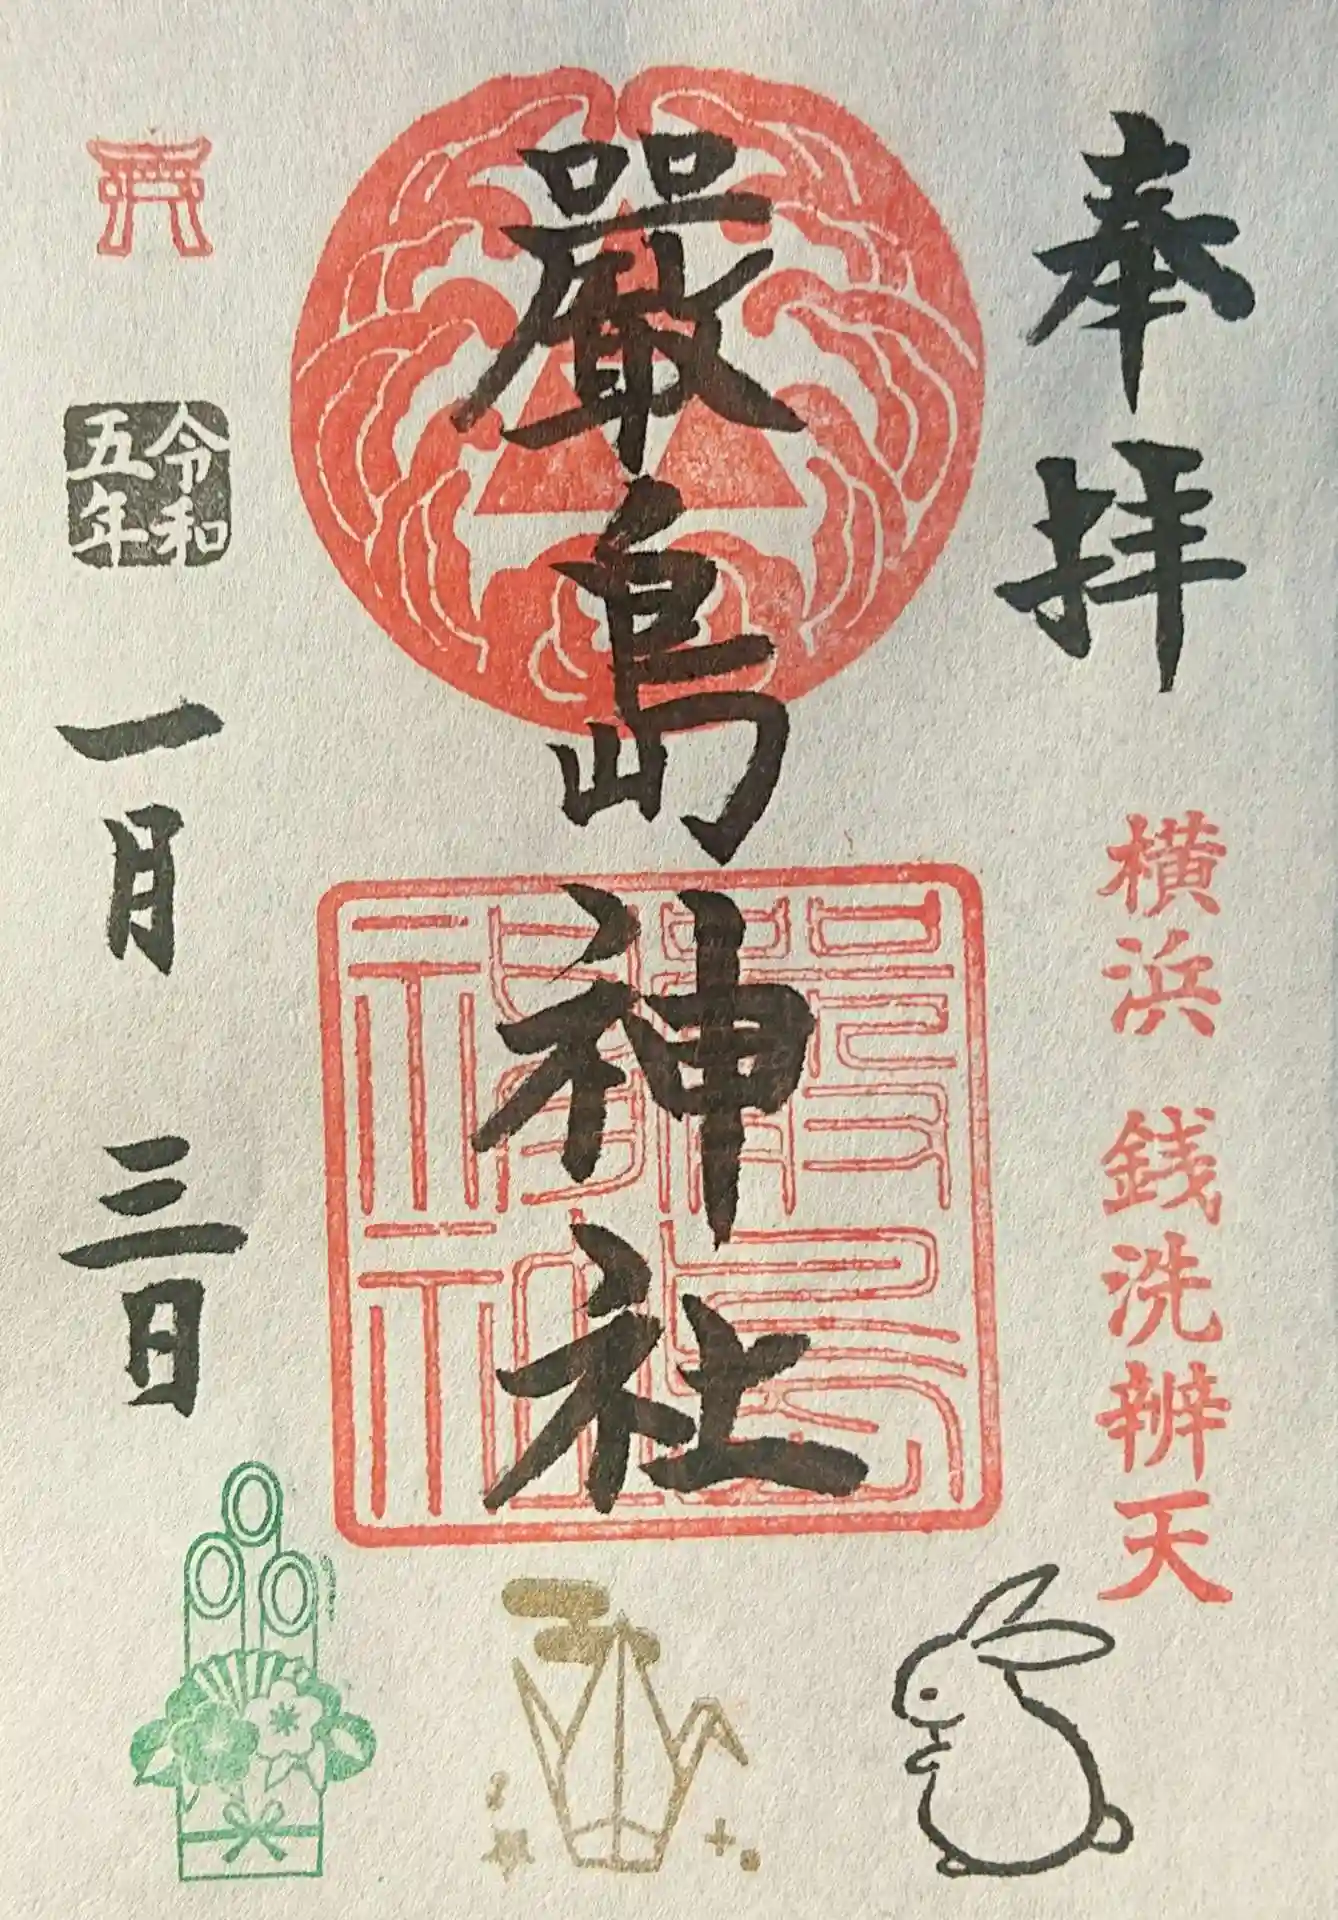 奉拝
横浜 銭洗辨天
嚴島神社
嚴島神社
令和五年
一月三日